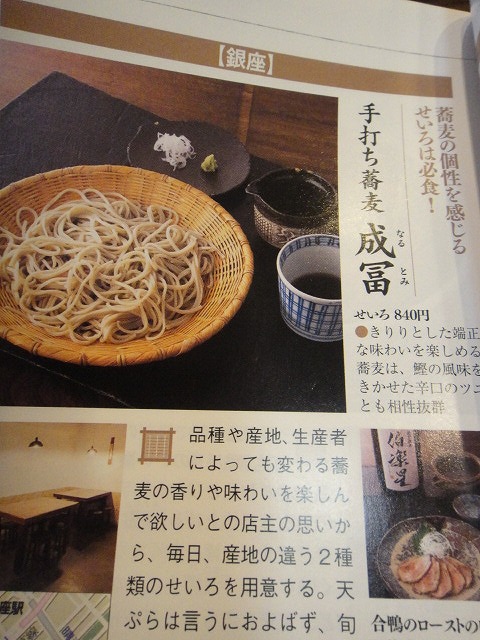 【銀座】
蕎麦の個性を感じる
せいろは必食!
手打ち蕎麦 成冨
なる とみ
せいろ 840円
●きりりとした端正
な味わいを楽しめる
蕎麦は、鰹の風味を
きかせた辛口のツユ
とも相性抜群
品種や産地、生産者
によっても変わる蕎
麦の香りや味わいを楽しん
で欲しいとの店主の思いか
ら、毎日、産地の違う2種
類のせいろを用意する。天
ぷらは言うにおよばず、旬
伯楽星
合鴨のローストの
座駅